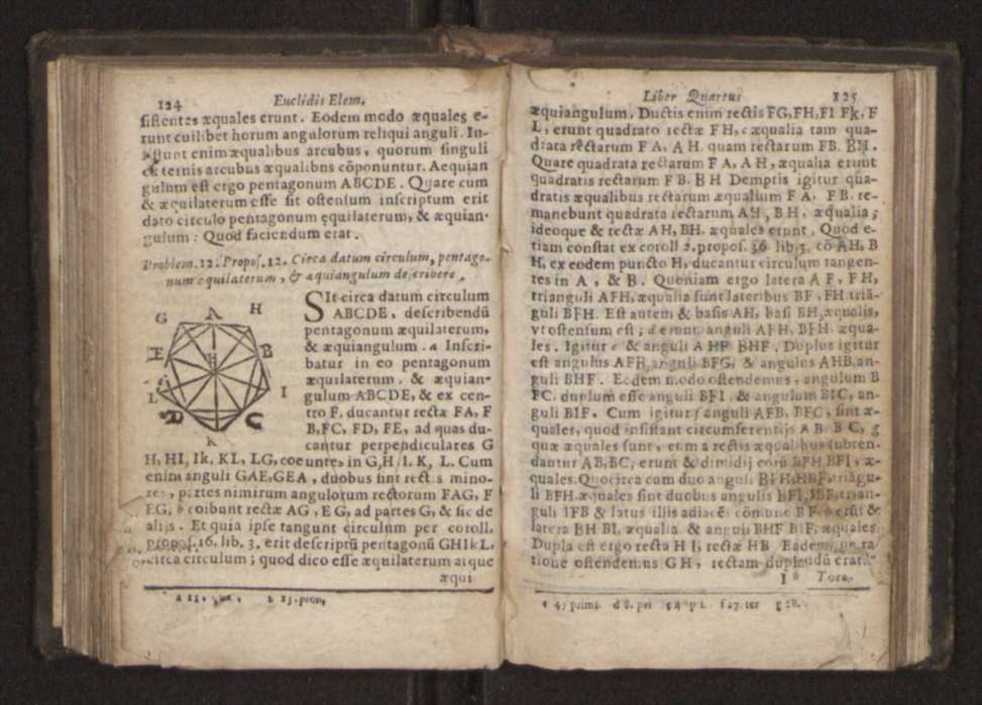 124 Euclidis Elem.
sistentes æquales erunt. Eodem modo æquales e-
runt cuilibet horum angulorum reliqui anguli. In-
sistunt enim æqualibus arcubus, quorum singuli
ex ternis arcubus æqualibns cõponuntur. Aequian
gulum est ergo pentagonum ABCDE. Quare cum
& æquilaterum esse sit ostensum inscriptum erit
dato circulo pentagonum ęquilaterum, & æquian-
gulum: Quod faciendum erat.
Problem. 12. Propos. 12. Circa datum circulum, pentago-
num equilaterum, & aquiangulum describere.
G A H
E B
L I
D C
K
SIt circa datum circulum
ABCDE, describendũ
pentagonum æquilaterum,
& æquiangulum. a Inscri-
batur in eo pentagonum
æquilaterum. & æquian-
gulum ABCDE, & ex cen-
tro F, ducantur rectæ FA, F
B, FC, FD, FE, ad quas du-
cantur perpendiculares G
H, HI, Ik, KL, LG, coeuntes in G, H, I, K, L. Cum
enim anguli GAE, GEA, duobus sint rectis mino-
res, partes nimirum angulorum rectorum FAG, F
EG, b coibunt rectæ AG, EG, ad partes G, & sic de
alijs. Et quia ipse tangunt circulum per coroll.
propos. 16. lib. 3. erit descriptũ pentagonũ GHIkL,
circa circulum; quod dico esse æquilaterum atque
æqui
a 11. b 13. pron.
Liber Quartus 125
æquiangulum. Ductis enim rectis FG, FH, FI Fk, F
L, erunt quadrato rectæ FH, c æqualia tam qua-
drata rectarum F A, A H. quam rectarum FB. BH.
Quare quadrata rectarum F A, A H, æqualia erunt
quadratis rectarum F B. B H Demptis igitur qua-
dratis æqualibus rectarum æqualium F A, F B. re-
manebunt quadrata rectarum AH, B H, æqualia;
ideoque & rectæ AH, BH. æquales erunt. Quod e-
tiam constat ex coroll 2. propos. 36 lib. 3. cõ AH, B
H, ex eodem puncto H, ducantur circulum tangen-
tes in A, & B. Quoniam ergo latera A F, F H,
trianguli AFH, æqualia sunt lateribus BF, FH triã-
guli BFH. Est autem & basis AH, basi BH, æqualis,
vt ostensum est; d erunt anguli AFH, BFH æqua-
les. Igitur e & anguli A HF BHF. Duplus igitur
est angulus AFB, anguli BFG, & angulus AHB, an-
guli BHF. Eodem modo ostendemus, angulum B
FC, duplum esse anguli BFI. & angulum BIC, an-
guli BIF. Cum igitur f anguli AFB, BFC, sint æ-
quales, quod insistant circumferentijs A B B C, g
quæ æquales sunt, cum a rectis æqualibus subten-
dantur AB, BC, erunt & dimidij eorũ BFH BFI, æ-
quales. Quocirca cum duo anguli
li BFH æquales sint duobus angulis BFI, IBF, trian-
guli IFB & latus illis adiacẽs cõmune B F
latera BH BI, æqualia & anguli BHF BIF, æquales
Dupla est ergo recta H I, rectæ HB Eadem
tione ostendemus GH, rectam
I Tota,
c 47 primi d 8. pri f 27. ter g 28.